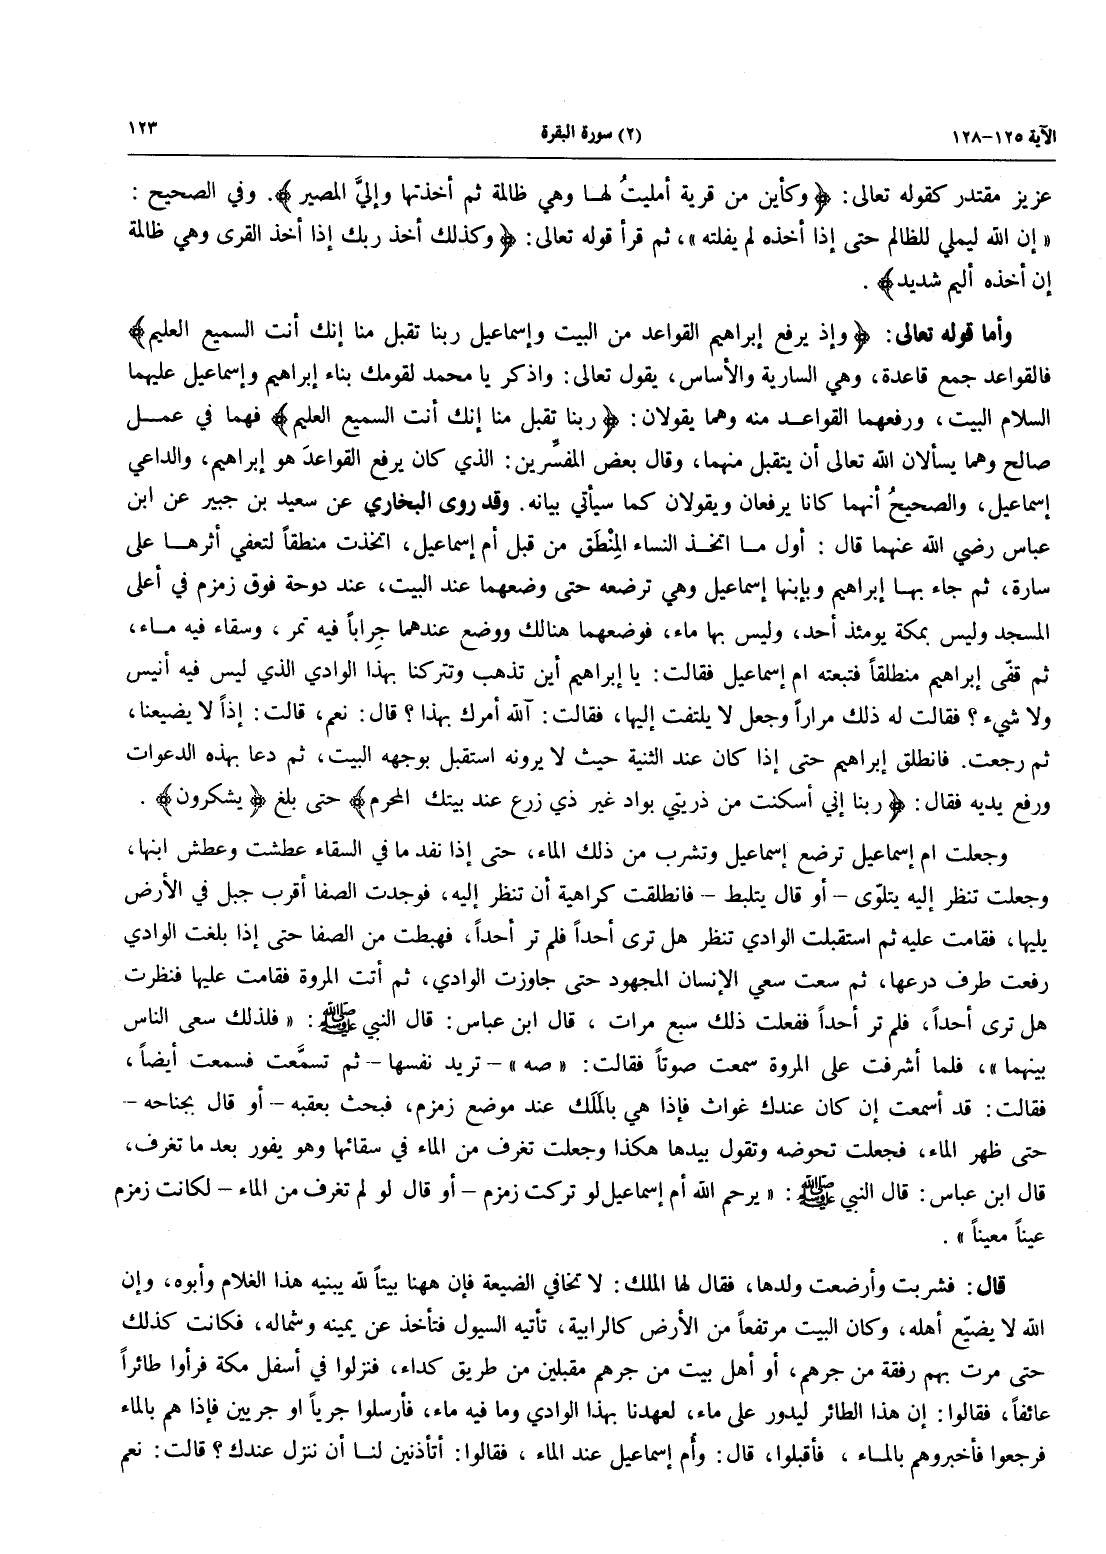 الآية ١٢٥-١٢٨ (٢) سورة البقرة ١٢٣
عزيز مقتدر كقوله تعالى: ﴿وكأين من قرية أمليتُ لهـا وهي ظالمة ثم أخذتها وإليَّ المصير﴾. وفي الصحيح :
« إن الله ليملي للظالم حتى إذا أخذه لم يفلته »، ثم قرأ قوله تعالى: ﴿وكذلك أخذ ربك إذا أخذ القرى وهي ظالمة
إن أخذه أليم شديد﴾ .
وأما قوله تعالى: ﴿وإذ يرفع إبراهيم القواعد من البيت وإسماعيل ربنا تقبل منا إنك أنت السميع العليم﴾
فالقواعد جمع قاعدة، وهي السارية والأساس، يقول تعالى: واذكر يا محمد لقومك بناء إبراهيم وإسماعيل عليهما
السلام البيت، ورفعهما القواعـد منه وهما يقولان: ﴿ربنا تقبل منا إنك أنت السميع العليم﴾ فهما في عمـل
صالح وهما يسألان الله تعالى أن يتقبل منهما، وقال بعض المفسِّرين: الذي كان يرفع القواعدَ هو إبراهيم، والداعي
إسماعيل، والصحيحُ أنهما كانا يرفعان ويقولان كما سيأتي بيانه. وقد روى البخاري عن سعيد بن جبير عن ابن
عباس رضي الله عنهما قال : أول مـا اتخـذ النساء المِنْطَق من قبل أم إسماعيل، اتخذت منطقاً لتعفي أثرهـا على
سارة، ثم جاء بهـا إبراهيم وبإبنها إسماعيل وهي ترضعه حتى وضعهما عند البيت، عند دوحة فوق زمزم في أعلى
المسجد وليس بمكة يومئذ أحد، وليس بها ماء، فوضعهما هنالك ووضع عندهما جِراباً فيه تمر ، وسقاء فيه مـاء،
ثم قفّى إبراهيم منطلقاً فتبعته ام إسماعيل فقالت: يا إبراهيم أين تذهب وتتركنا بهذا الوادي الذي ليس فيه أنيس
ولا شيء ؟ فقالت له ذلك مراراً وجعل لا يلتفت إليها، فقالت: آلله أمرك بهذا ؟ قال: نعم، قالت: إذاً لا يضيعنا،
ثم رجعت. فانطلق إبراهيم حتى إذا كان عند الثنية حيث لا يرونه استقبل بوجهه البيت، ثم دعا بهذه الدعوات
ورفع يديه فقال: ﴿ربنا إني أسكنت من ذريتي بواد غير ذي زرع عند بيتك المحرم﴾ حتى بلغ ﴿يشكرون﴾ .
وجعلت ام إسماعيل ترضع إسماعيل وتشرب من ذلك الماء، حتى إذا نفد ما في السقاء عطشت وعطش ابنها،
وجعلت تنظر إليه يتلوّى – أو قال يتلبط – فانطلقت كراهية أن تنظر إليه، فوجدت الصفا أقرب جبل في الأرض
يليها، فقامت عليه ثم استقبلت الوادي تنظر هل ترى أحداً فلم تر أحداً، فهبطت من الصفا حتى إذا بلغت الوادي
رفعت طرف درعها، ثم سعت سعي الإنسان المجهود حتى جاوزت الوادي، ثم أتت المروة فقامت عليها فنظرت
هل ترى أحداً، فلم تر أحداً ففعلت ذلك سبع مرات ، قال ابن عباس: قال النبي ﷺ: « فلذلك سعى الناس
بينهما »، فلما أشرفت على المروة سمعت صوتاً فقالت: « صه » – تريد نفسها – ثم تسمَّعت فسمعت أيضاً،
فقالت: قد أسمعت إن كان عندك غواث فإذا هي بالمَلَك عند موضع زمزم، فبحث بعقبه – أو قال بجناحه –
حتى ظهر الماء، فجعلت تحوضه وتقول بيدها هكذا وجعلت تغرف من الماء في سقائها وهو يفور بعد ما تغرف،
قال ابن عباس: قال النبي ﷺ: « يرحم الله أم إسماعيل لو تركت زمزم – أو قال لو لم تغرف من الماء – لكانت زمزم
عيناً معيناً » .
قال: فشربت وأرضعت ولدها، فقال لها الملك: لا تخافي الضيعة فإن ههنا بيتاً لله يبنيه هذا الغلام وأبوه، وإن
الله لا يضيّع أهله، وكان البيت مرتفعاً من الأرض كالرابية، تأتيه السيول فتأخذ عن يمينه وشماله، فكانت كذلك
حتى مرت بهم رفقة من جرهم، أو أهل بيت من جرهم مقبلين من طريق كداء، فنزلوا في أسفل مكة فرأوا طائراً
عائفاً، فقالوا: إن هذا الطائر ليدور على ماء، لعهدنا بهذا الوادي وما فيه ماء، فأرسلوا جرياً او جريين فإذا هم بالماء
فرجعوا فأخبروهم بالمـاء ، فأقبلوا، قال: وأم إسماعيل عند الماء ، فقالوا: أتأذنين لنـا أن ننزل عندك ؟ قالت: نعم